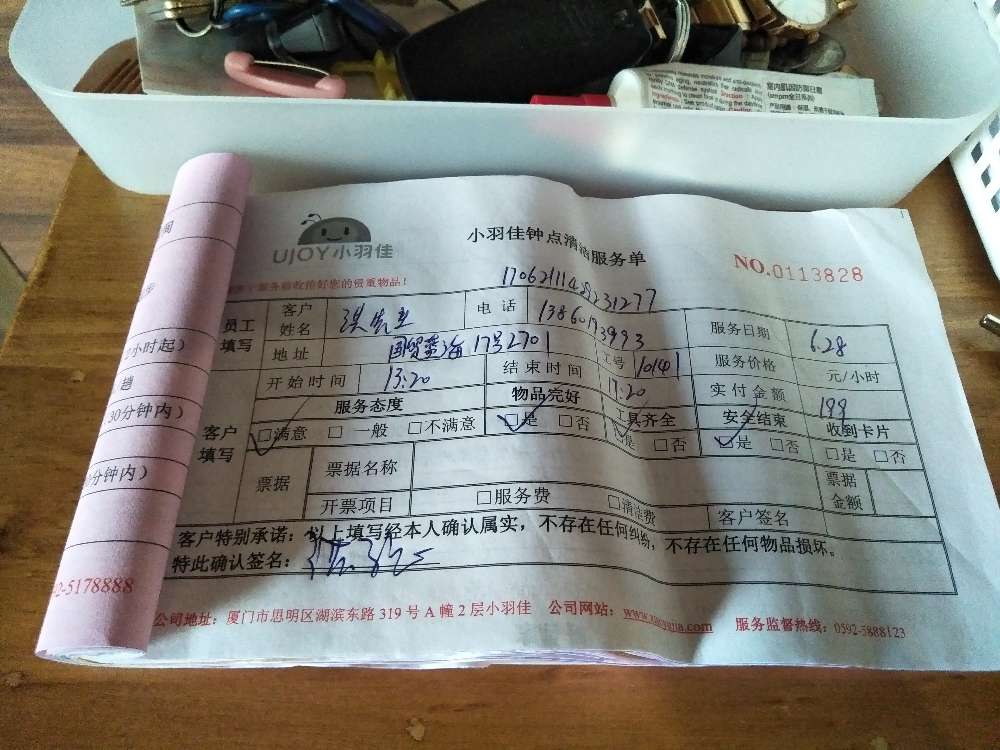 室内肌因防御日霜
(ampm全日系列)
UJOY小羽佳
小羽佳钟点清洁服务单
NO.0113828
服务验收保管好您的贵重物品!
员工填写
客户姓名
洪先生
电话
13860173993
服务日期
6.28
地址
国贸蓝海17号2701
工号
10141
服务价格
元/小时
开始时间
13:20
结束时间
17:20
实付金额
199
客户填写
服务态度
物品完好
工具齐全
安全结束
收到卡片
□满意 □一般 □不满意
□是 □否
□是 □否
□是 □否
□是 □否
票据
票据名称
票据金额
开票项目
□服务费 □清洁费
客户签名
客户特别承诺:以上填写经本人确认属实,不存在任何纠纷,不存在任何物品损坏。
特此确认签名:
公司地址:厦门市思明区湖滨东路 319 号 A 幢 2 层小羽佳 公司网站:www.xiaoyujia.com 服务监督热线:0592-5888123
小时起)
30分钟内)
分钟内)
2-5178888